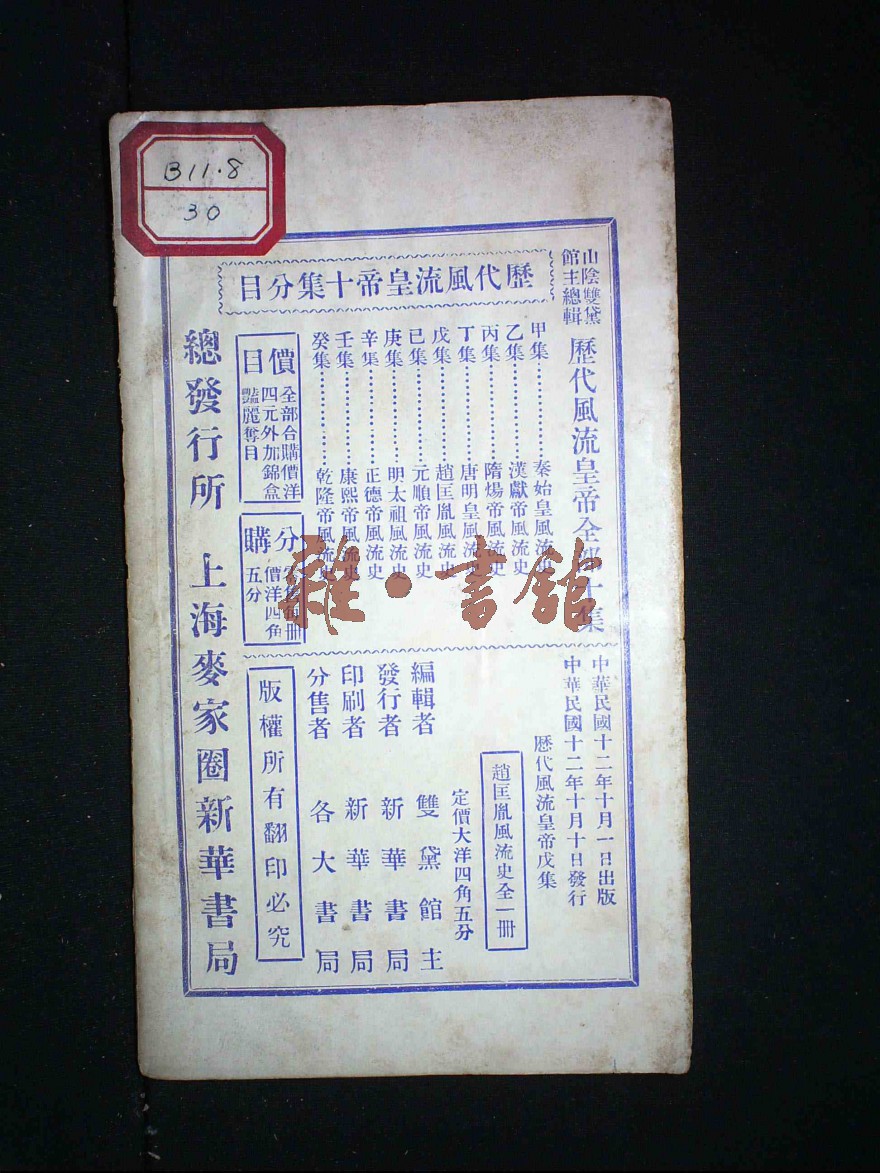 B11.8
30
山陰雙黛
館主總輯
歷代風流皇帝全部十集
歷代風流皇帝十集分目
甲集⋯⋯⋯⋯秦始皇風流史
乙集⋯⋯⋯⋯漢獻帝風流史
丙集⋯⋯⋯⋯隋煬帝風流史
丁集⋯⋯⋯⋯唐明皇風流史
戊集⋯⋯⋯⋯趙匡胤風流史
己集⋯⋯⋯⋯元順帝風流史
庚集⋯⋯⋯⋯明太祖風流史
辛集⋯⋯⋯⋯正德帝風流史
壬集⋯⋯⋯⋯康熙帝風流史
癸集⋯⋯⋯⋯乾隆帝風流史
價目
全部合購價洋
四元外加錦盒
豔麗奪目
分購
每冊
價洋四角
五分
中華民國十二年十月一日出版
中華民國十二年十月十日發行
歷代風流皇帝戊集
趙匡胤風流史全一冊
定價大洋四角五分
編輯者 雙黛館主
發行者 新華書局
印刷者 新華書局
分售者 各大書局
版權所有翻印必究
總發行所 上海麥家圈新華書局
雜·書館